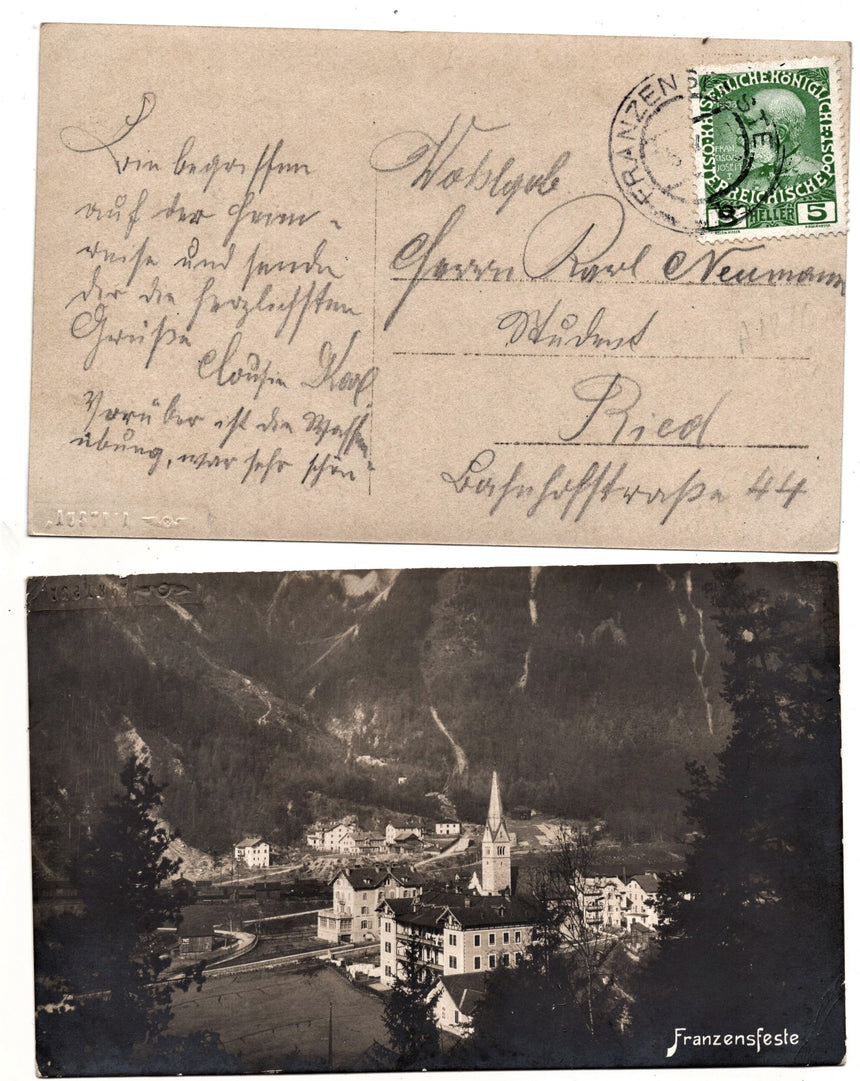 Bin begriffen
auf der Heim-
reise und sende
dir die herzlichsten
Grüße
Cousin Karl
Vorüber ist die Waffen-
übung, war sehr schön
Wohlgeb
Herrn Karl Neumann
Student
Ried
Bahnhofstraße 44
FRANZENSFESTE
KAISERLICHE KÖNIGLICHE
ÖSTERREICHISCHE POST
FRAN
CISCVS
JOSEF
I
5 HELLER 5
Franzensfeste